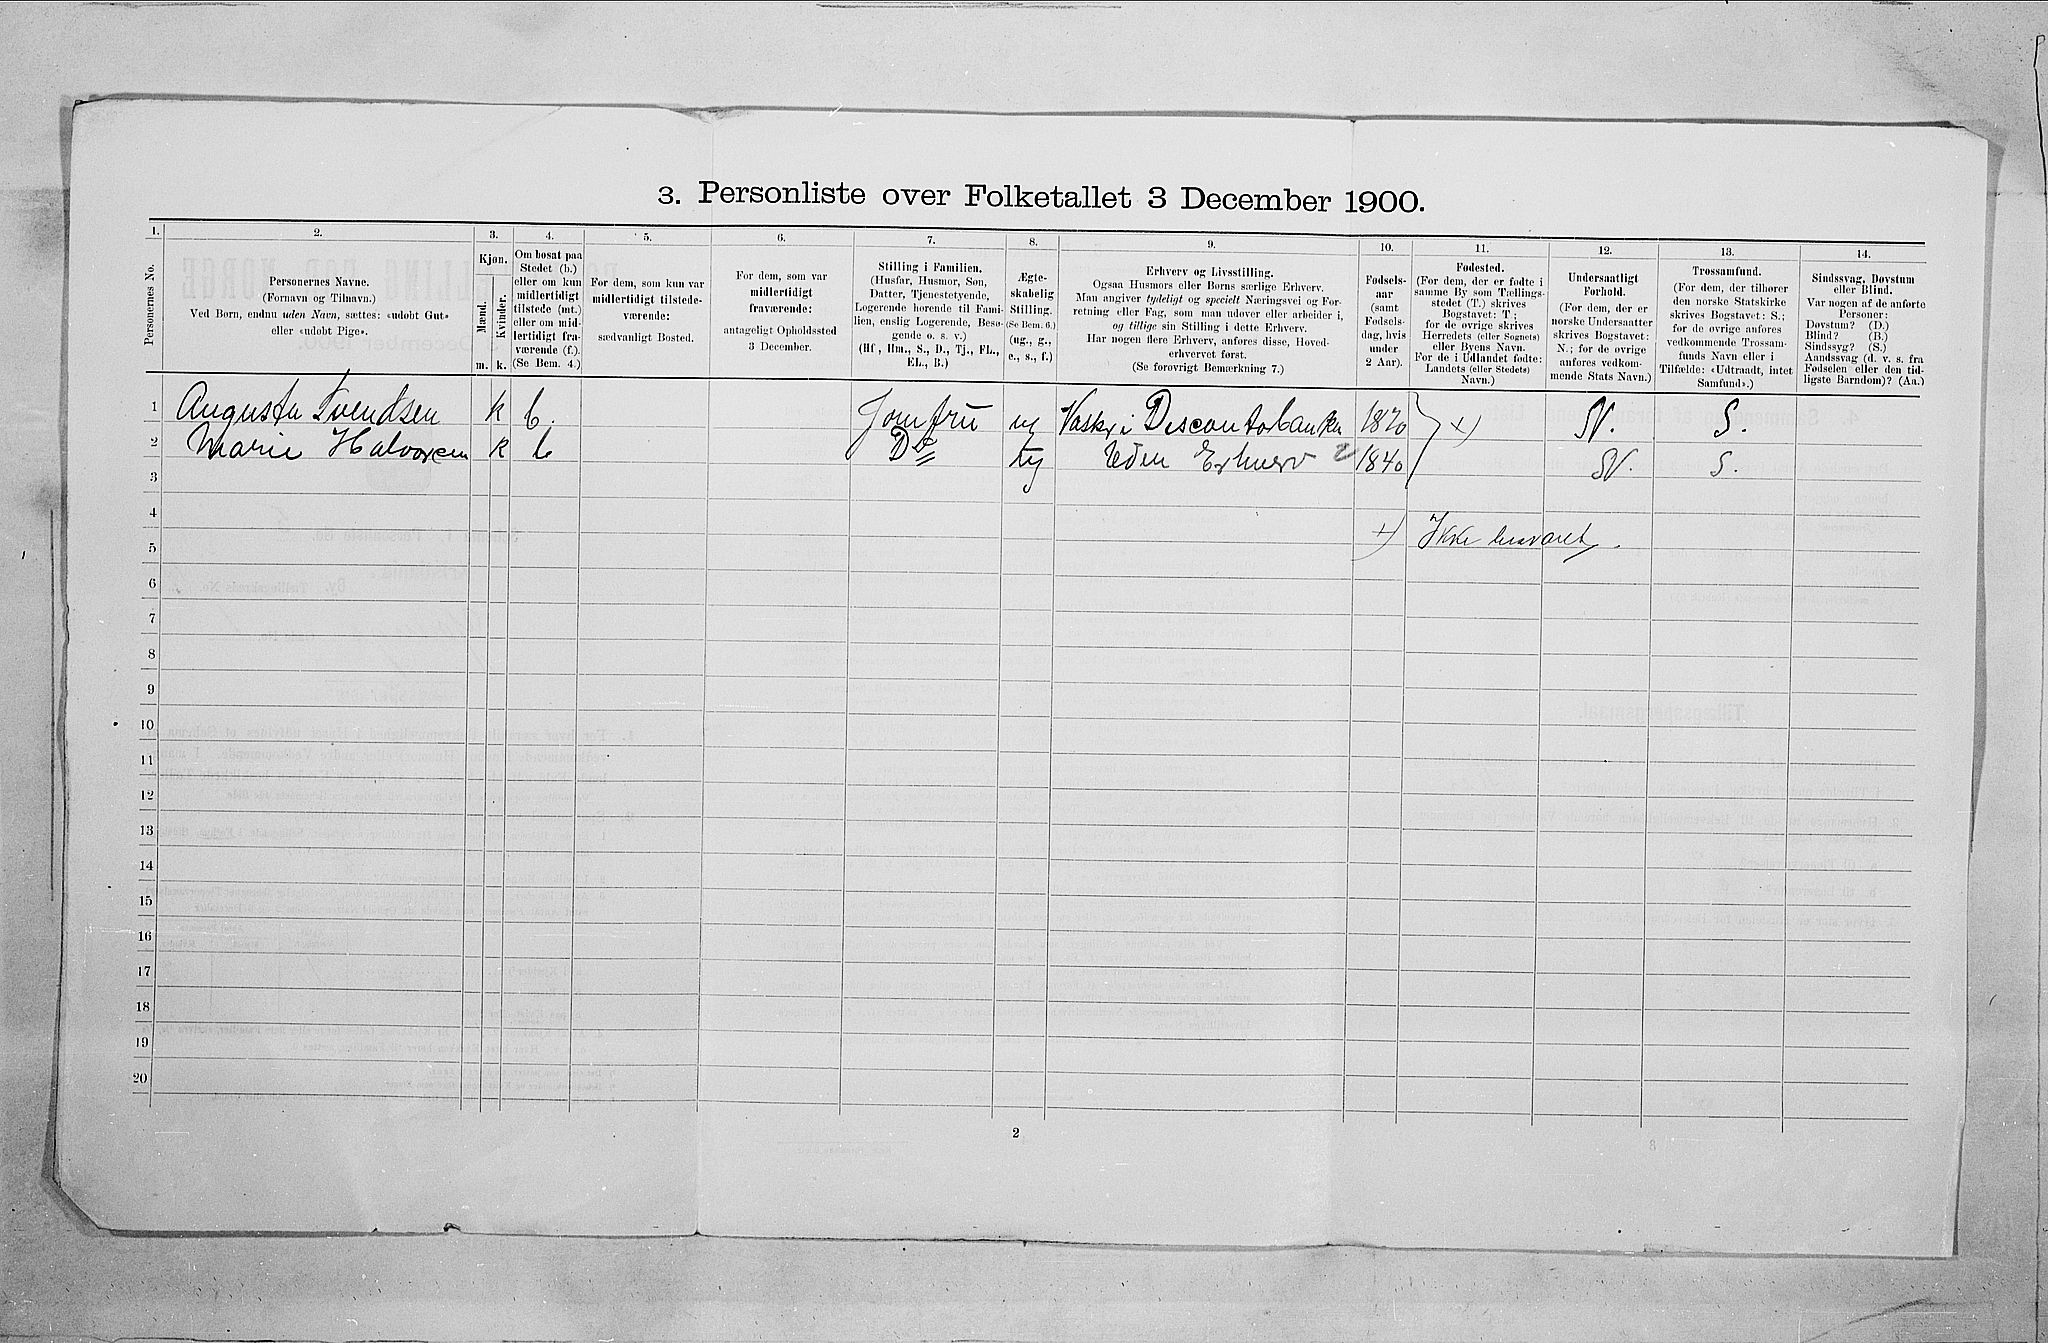 3. Personliste over Folketallet 3 December 1900.
1.
2.
3.
4.
5.
6.
7.
8.
9.
10.
11.
12.
13.
14.
Personernes No.
Personernes Navne.
(Fornavn og Tilnavn.)
Ved Børn, endnu uden Navn, sættes: «udøbt Gut»
eller «udøbt Pige».
Kjøn.
Mænd.
Kvinder.
m.
k.
Om bosat paa
Stedet (b.)
eller om kun
midlertidigt
tilstede (mt.)
eller om mid-
lertidigt fra-
værende (f.).
(Se Bem. 4.)
For dem, som kun var
midlertidigt tilstede-
værende:
sædvanligt Bosted.
For dem, som var
midlertidigt
fraværende:
antageligt Opholdssted
3 December.
Stilling i Familien.
(Husfar, Husmor, Søn,
Datter, Tjenestetyende,
Logerende hørende til Fami-
lien, enslig Logerende, Besø-
gende o. s. v.)
(Hf, Hm., S., D., Tj., FL.,
EL., B.)
Ægte-
skabelig
Stilling.
(Se Bem. 6.)
(ug., g.,
e., s., f.)
Erhverv og Livsstilling.
Ogsaa Husmors eller Børns særlige Erhverv.
Man angiver tydeligt og specielt Næringsvei og For-
retning eller Fag, som man udøver eller arbeider i,
og tillige sin Stilling i dette Erhverv.
Har nogen flere Erhverv, anføres disse, Hoved-
erhvervet først.
(Se forøvrigt Bemærkning 7.)
Fødsels-
aar
(samt
Fødsels-
dag, hvis
under
2 Aar).
Fødested.
(For dem, der er fødte i
samme By som Tællings-
stedet (T.) skrives
Bogstavet: T;
for de øvrige skrives
Herredets (eller Sognets)
eller Byens Navn.
For de i Udlandet fødte:
Landets (eller Stedets)
Navn.)
Undersaatligt
Forhold.
(For dem, der er
norske Undersaatter
skrives Bogstavet:
N.; for de øvrige
anføres vedkom-
mende Stats Navn.)
Trossamfund.
(For dem, der tilhører
den norske Statskirke
skrives Bogstavet: S.;
for de øvrige anføres
vedkommende Trossam-
funds Navn eller i
Tilfælde: «Udtraadt, intet
Samfund».)
Sindssvag, Døvstum
eller Blind.
Var nogen af de anførte
Personer:
Døvstum? (D.)
Blind? (B.)
Sindssyg? (S.)
Aandssvag (d. v. s. fra
Fødselen eller den tid-
ligste Barndom)? (Aa.)
1 Augusta Svendsen k b. Jomfru ug Vask i Discontobanken 1820 x) N. S.
2 Marie Halvorsen k b Do ug Uden Erhverv 1840 N. S.
3
4
x) Ikke besvaret.
5
6
7
8
9
10
11
12
13
14
15
16
17
18
19
20
2